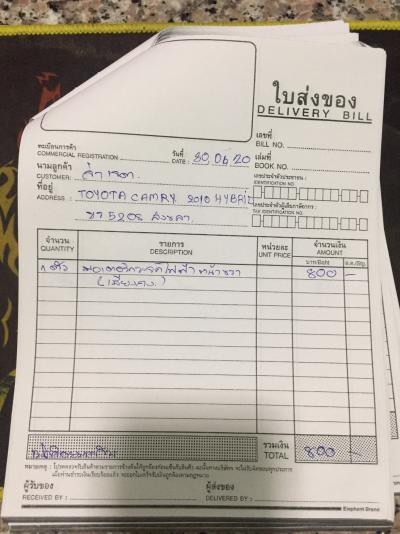 ใบส่งของ
DELIVERY BILL
เลขที่
BILL NO.
ทะเบียนการค้า
COMMERCIAL REGISTRATION
วันที่
DATE : 30/06/20
เล่มที่
BOOK NO.
นามลูกค้า
CUSTOMER:
เลขประจำตัวประชาชน :
IDENTIFICATION NO.
ที่อยู่
ADDRESS : TOYOTA CAMRY 2010 HYBRID
เลขประจำตัวผู้เสียภาษีอากร :
TAX IDENTIFICATION NO.
5208 สงขลา
จำนวน
QUANTITY
รายการ
DESCRIPTION
หน่วยละ
UNIT PRICE
จำนวนเงิน
AMOUNT
บาท/Baht
ส.ต./Stg.
1 ตัว มอเตอร์กระจกไฟฟ้า หน้าขวา 800 –
รวมเงิน
TOTAL 800 –
ผู้รับของ
RECEIVED BY :
ผู้ส่งของ
DELIVERED BY :
Elephant Brand